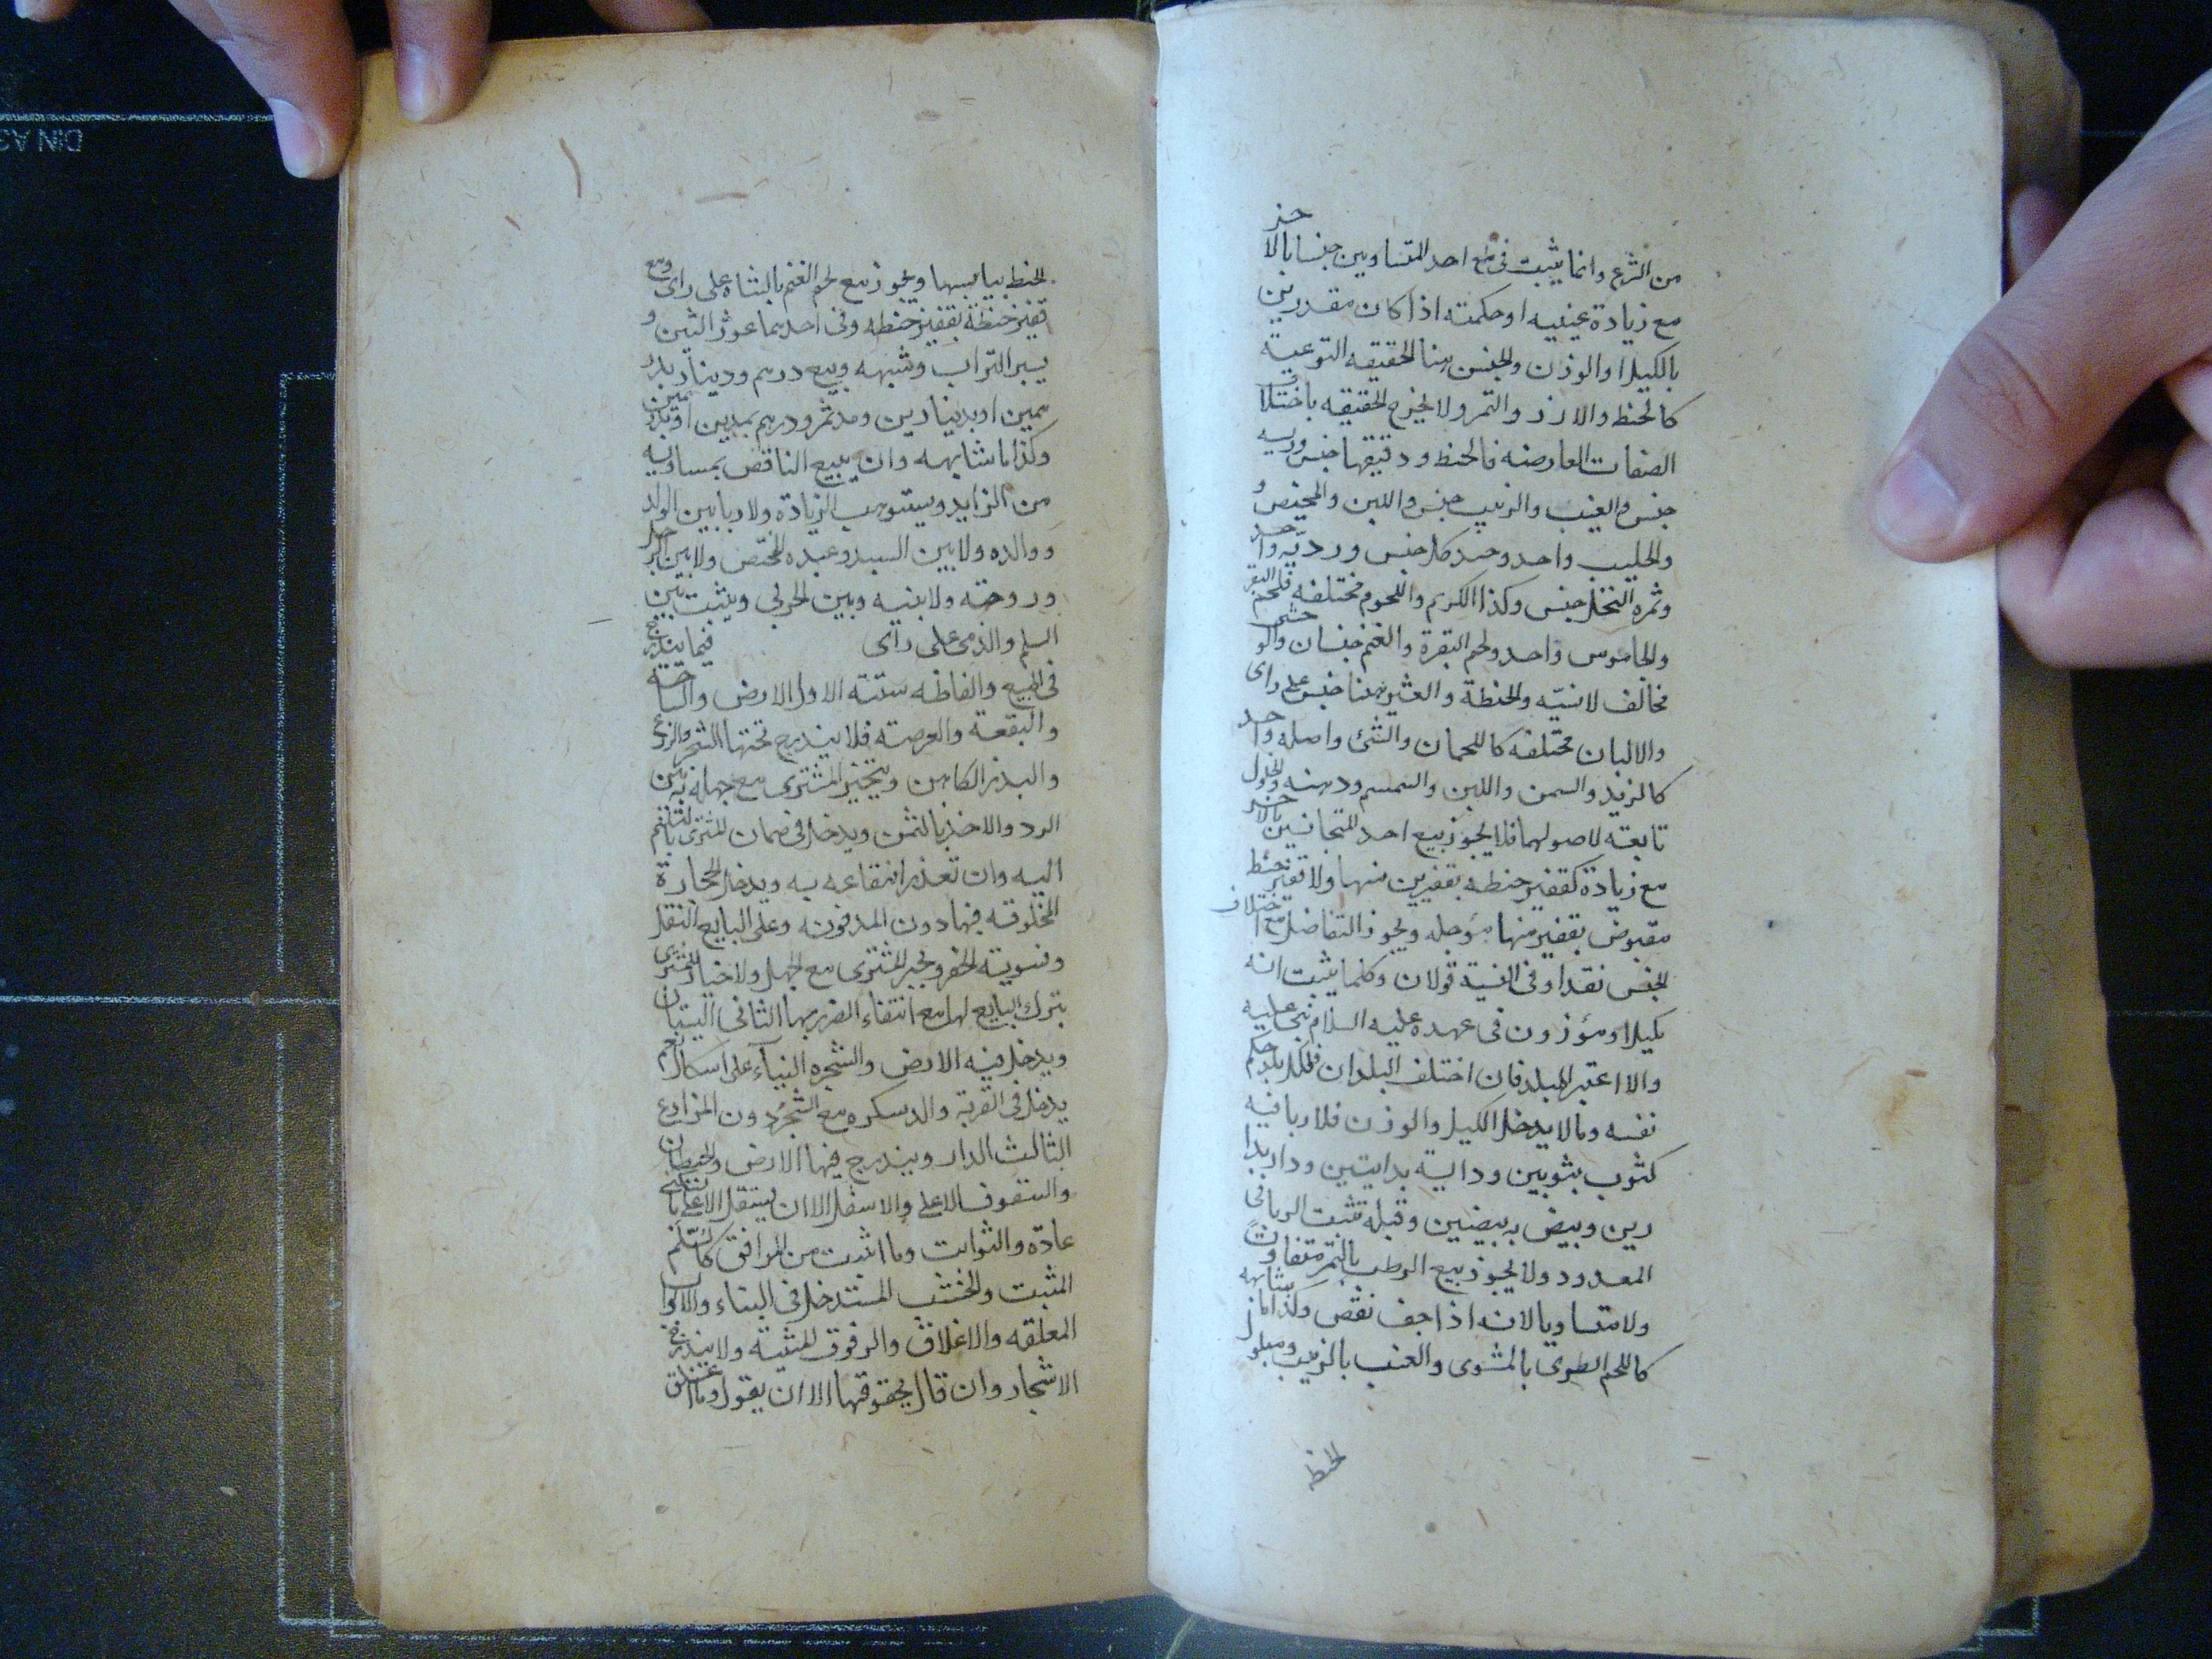 من الشرع وانما يثبت فى بيع احد المتساويين جنسا بالاخر
مع زيادة عينيه او حكميته اذا كان مقدرين
بالكيل او الوزن والجنس هنا الحقيقه النوعية
كالحنط والارز والتمر ولا يخرج الحقيقه باختلاف
الصفات العارضه فالحنط ودقيقها جنس
جنس والعنب والزبيب جنس واللبن والمخيض و
والحليب واحد وجيد كل جنس ورديه واحد
وثمره النخل جنس وكذا الكرم واللحوم مختلفه فلحم البقر
والجاموس واحد ولحم البقرة والغنم جنسان والوحشى
مخالف لانسيه والحنطة والشعير هنا جنس على راى
والالبان مختلفه كاللحمان والشئ واصله واحد
كالزبد والسمن واللبن والسمسم ودهنه والخلول
تابعته لاصولهما فلا يجوز بيع احد المتجانسين بالاخر
مع زيادة كقفيز حنطه بقفيزين منها ولا قفيز حنط
مقبوض بقفيز منها مؤجله ويجوز التفاضل مع اختلاف
الجنس نقدا وفى النسية قولان وكلما يثبت انه
مكيل او موزون فى عهده عليه السلام بنى عليه
والا اعتبر البلد فان اختلف البلدان فلكل بلد حكم
نفسه وما لا يدخل الكيل والوزن فلا ربا فيه
كثوب بثوبين ودابة بدابتين ودار بدا
رين وبيض ببيضين وقيله تثبت الربا فى
المعدود ولا يجوز بيع الرطب بالتمر متفاوت
ولا متساويا لانه اذا جف نقص وكذا ما شابهه
كاللحم الطرى بالمشوى والعنب بالزبيب ومبلول
الحنط
الحنط بيابسها ويجوز بيع لحم الغنم بالشاه على راى وبيع
قفيز حنطة بقفيز حنطه وفى احدهما عقد التبن و
يسير التراب وشبهه وبيع درهم ودينار بدر
همين او بدينارين ومد تمر ودرهم بمدين او بدرهمين
وكذا ما شابهه وان يبيع الناقص بمساويه
من الزايد ويستوهب الزيادة ولا ربا بين الولد
ووالده ولا بين السيد وعبده المختص ولا بين الرجل
وزوجته ولا بينه وبين الحربى ويثبت بين
المسلم والذمى على راى فيما يندرج
فى المبيع والفاظه ستة الاول الارض والساحة
والبقعة والعرصة فلا يندرج تحتها الشجر والزرع
والبذر الكامن ويتخير المشترى مع جهله به بين
الرد والاخذ بالثمن ويدخل فى ضمان المشترى بالتسليم
اليه وان تعذر انتفاعه به ويدخل الحجارة
المخلوقه فيها دون المدفونه وعلى البايع النقل
وتسوية الحفر ويتخير المشترى مع الجهل ولا خيار للمشترى
بترك البايع لها مع انتفاء الضرر بها الثانى البستان
ويدخل فيه الارض والشجره البناء على اشكال نعم
يدخل فى القرية والدسكره مع الشجر دون المزارع
الثالث الدار ويندرج فيها الارض والحيطان
والسقوف الاعلى والاسفل الا ان يستقل الاعلى بالسكنى
عادة والثوابت وما اثبت من المرافق كالسلم
المثبت والخشب المستدخل فى البناء والابواب
المعلقه والاغلاق والرفوف المثبتة ولا يندرج
الاشجار وان قال بحقوقها الا ان يقول وما اغلق